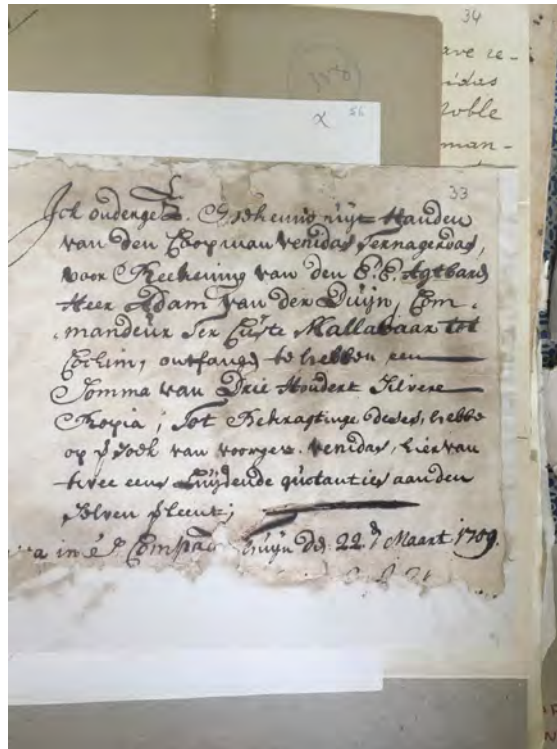 34
ave re-
idas
noble
man-
56
X
33
Ick onderges. Bekenne uijt Handen
van den Coopman Venidas
voor Reekening van den E. E. Agtbare
Heer Adam van der Duijn, Com-
mandeur ter Custe Mallabaar tot
Cochim, ontfangen te hebben een
Somma van Drie Hondert Silvere
Ropia; Tot Bekragtinge deses, hebbe
op versoek van voorgen. Venidas, hier van
twee eens Luijdende quotanties aan den
selven verleent;
a in 's Compag huijs den 22 Maart 1709.